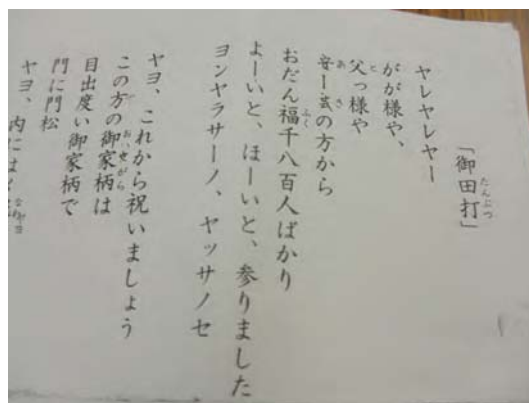 「御田打」
ヤレヤレヤー
がが様や、
父っ様や
の方から
おだん福千八百人ばかり
よーいと、ほーいと、参りました
ヨンヤラサーノ、ヤッサノセ
ヤヨ、これから祝いましょう
この方の御家柄は
目出度い御家柄で
門に門松
ヤヨ、内には